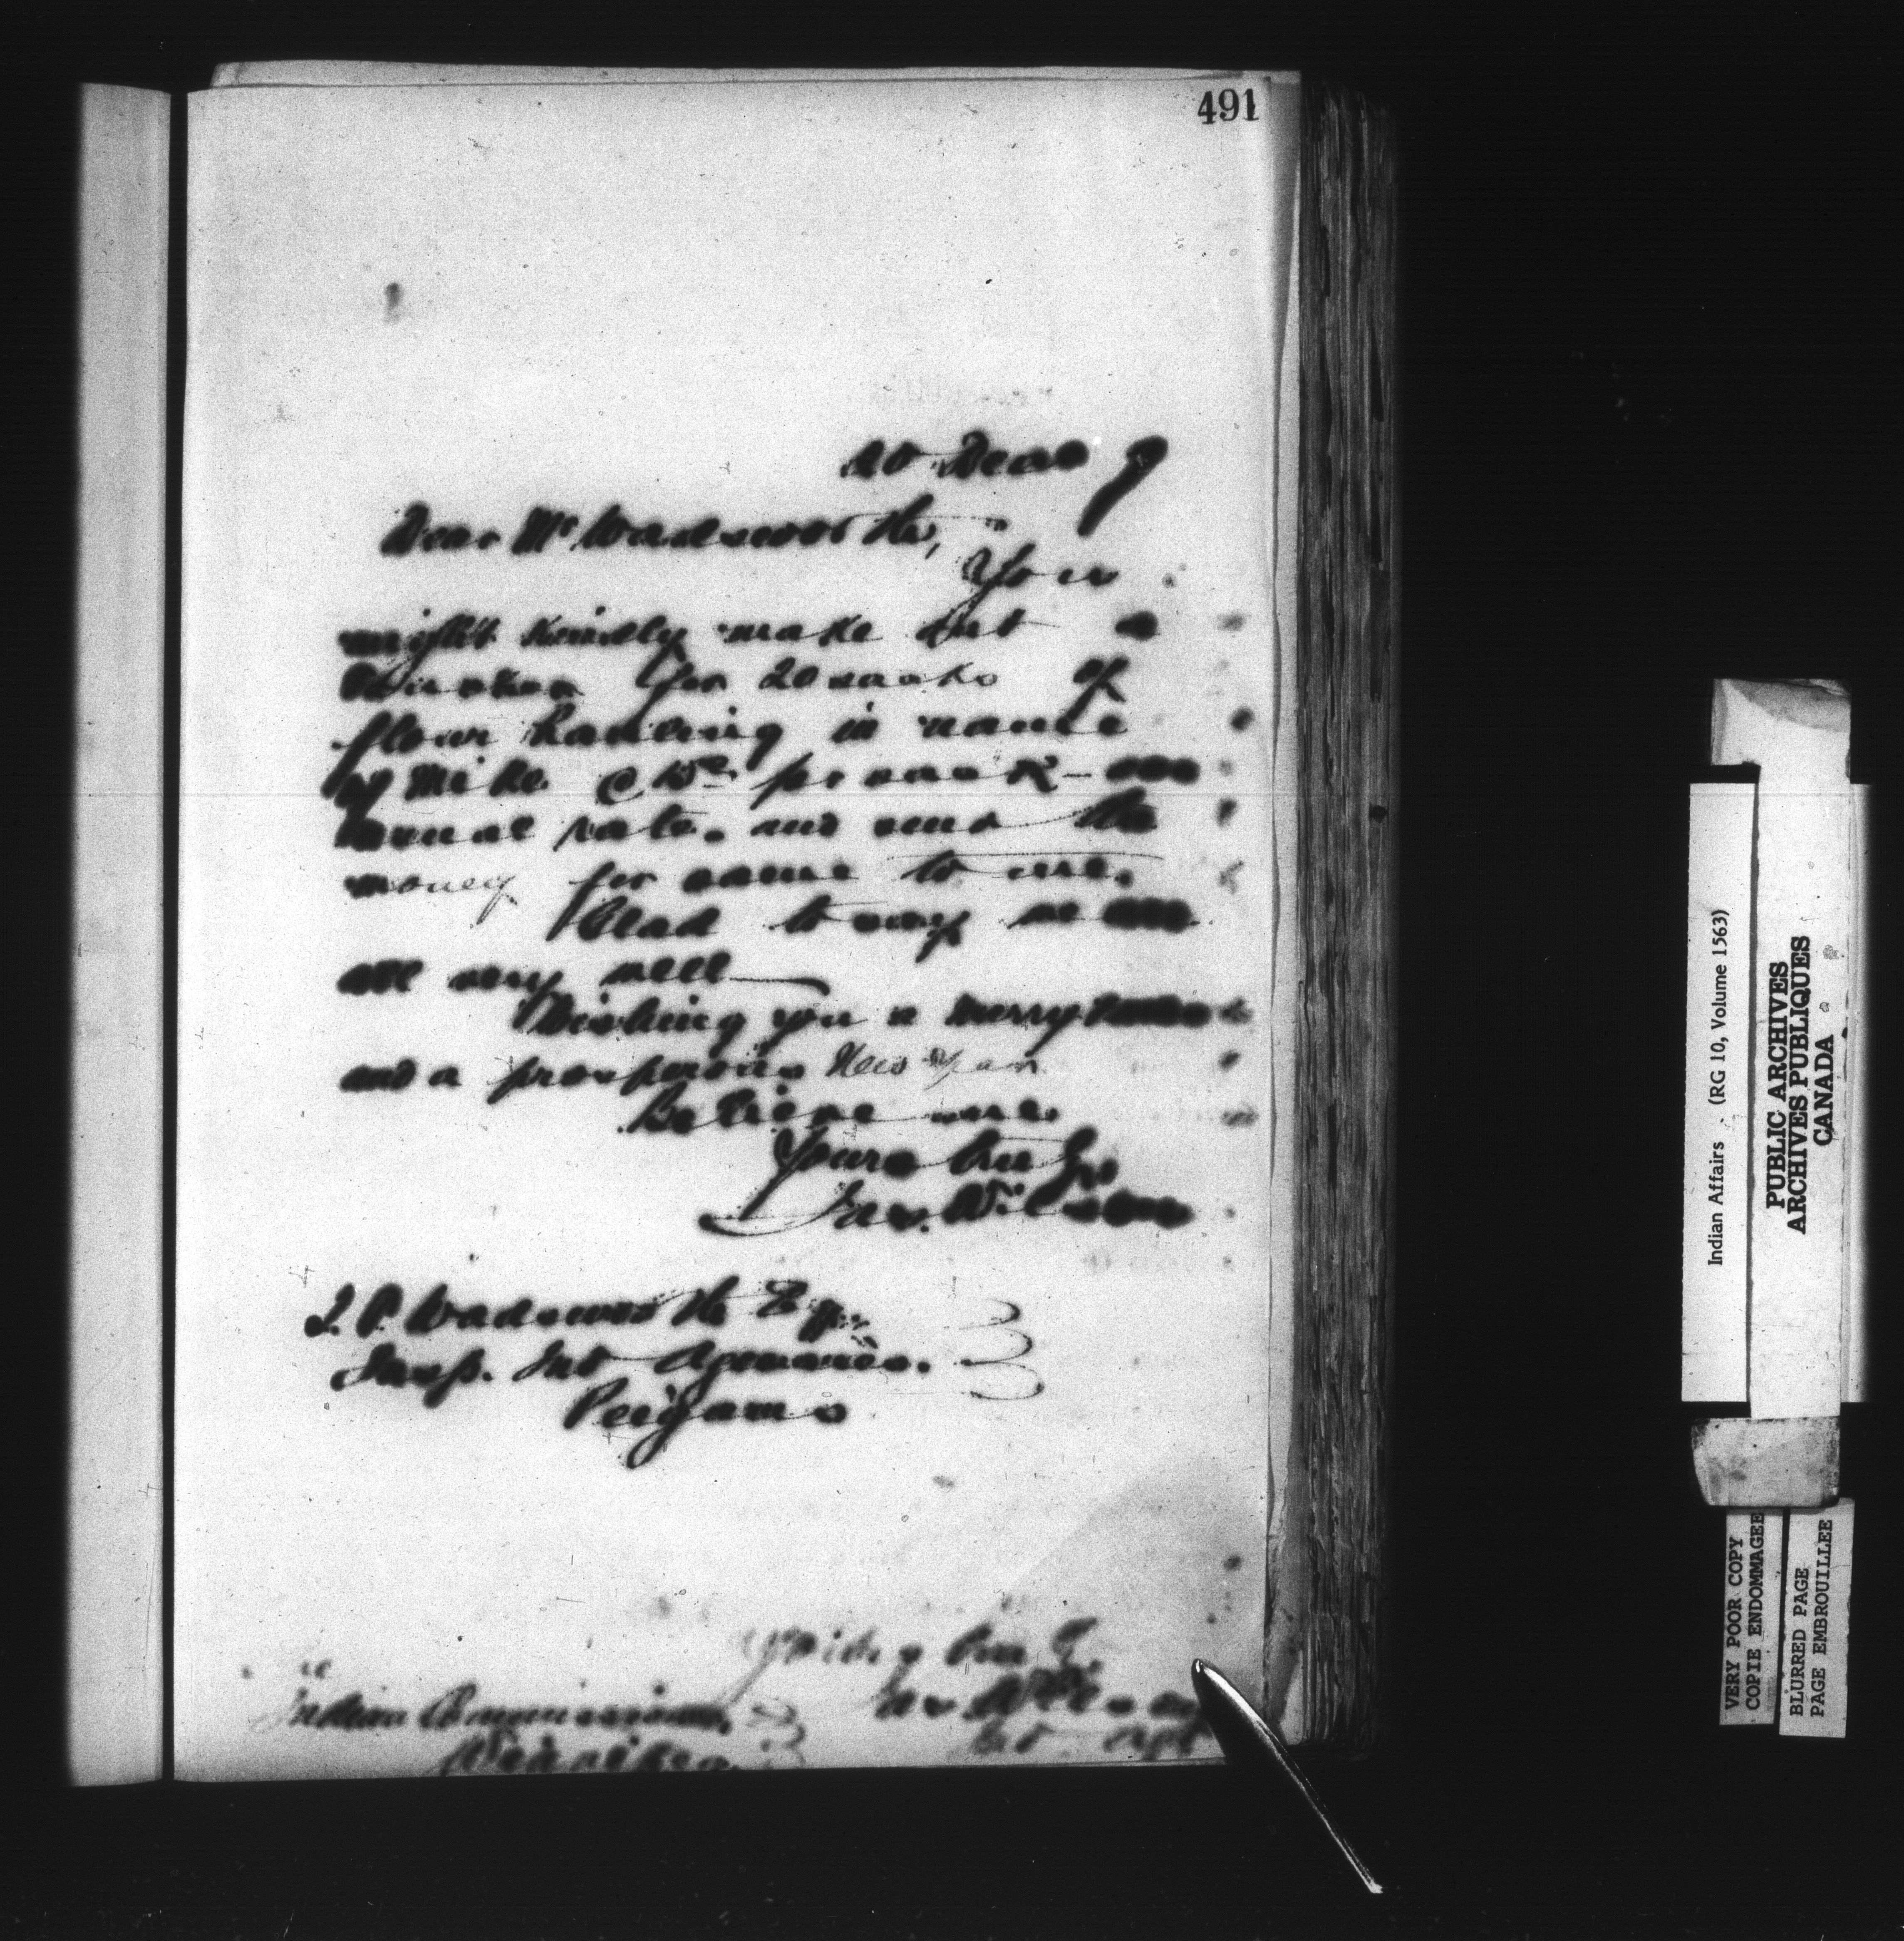 491
20 Dec 9
Dear Mr Wadsworth,
You
might kindly make out a
Voucher for 20 sacks of
flour hauling in name
of Mike @ 15c per sack
usual rate. and send the
money for same to me.
Glad to say we are
all very well
Wishing you a merry xmas
and a prosperous New Year
Believe me
Yours truly
Jas. Wilson
T. P. Wadsworth Esq.
Insp. Ind Agencies.
Peigans
truly
Jas Wilson
Indian Commissioner
Ind Agt
Indian Affairs (RG 10, Volume 1563)
PUBLIC ARCHIVES
ARCHIVES PUBLIQUES
CANADA
VERY POOR COPY
COPIE ENDOMMAGEE
BLURRED PAGE
PAGE EMBROUILLEE